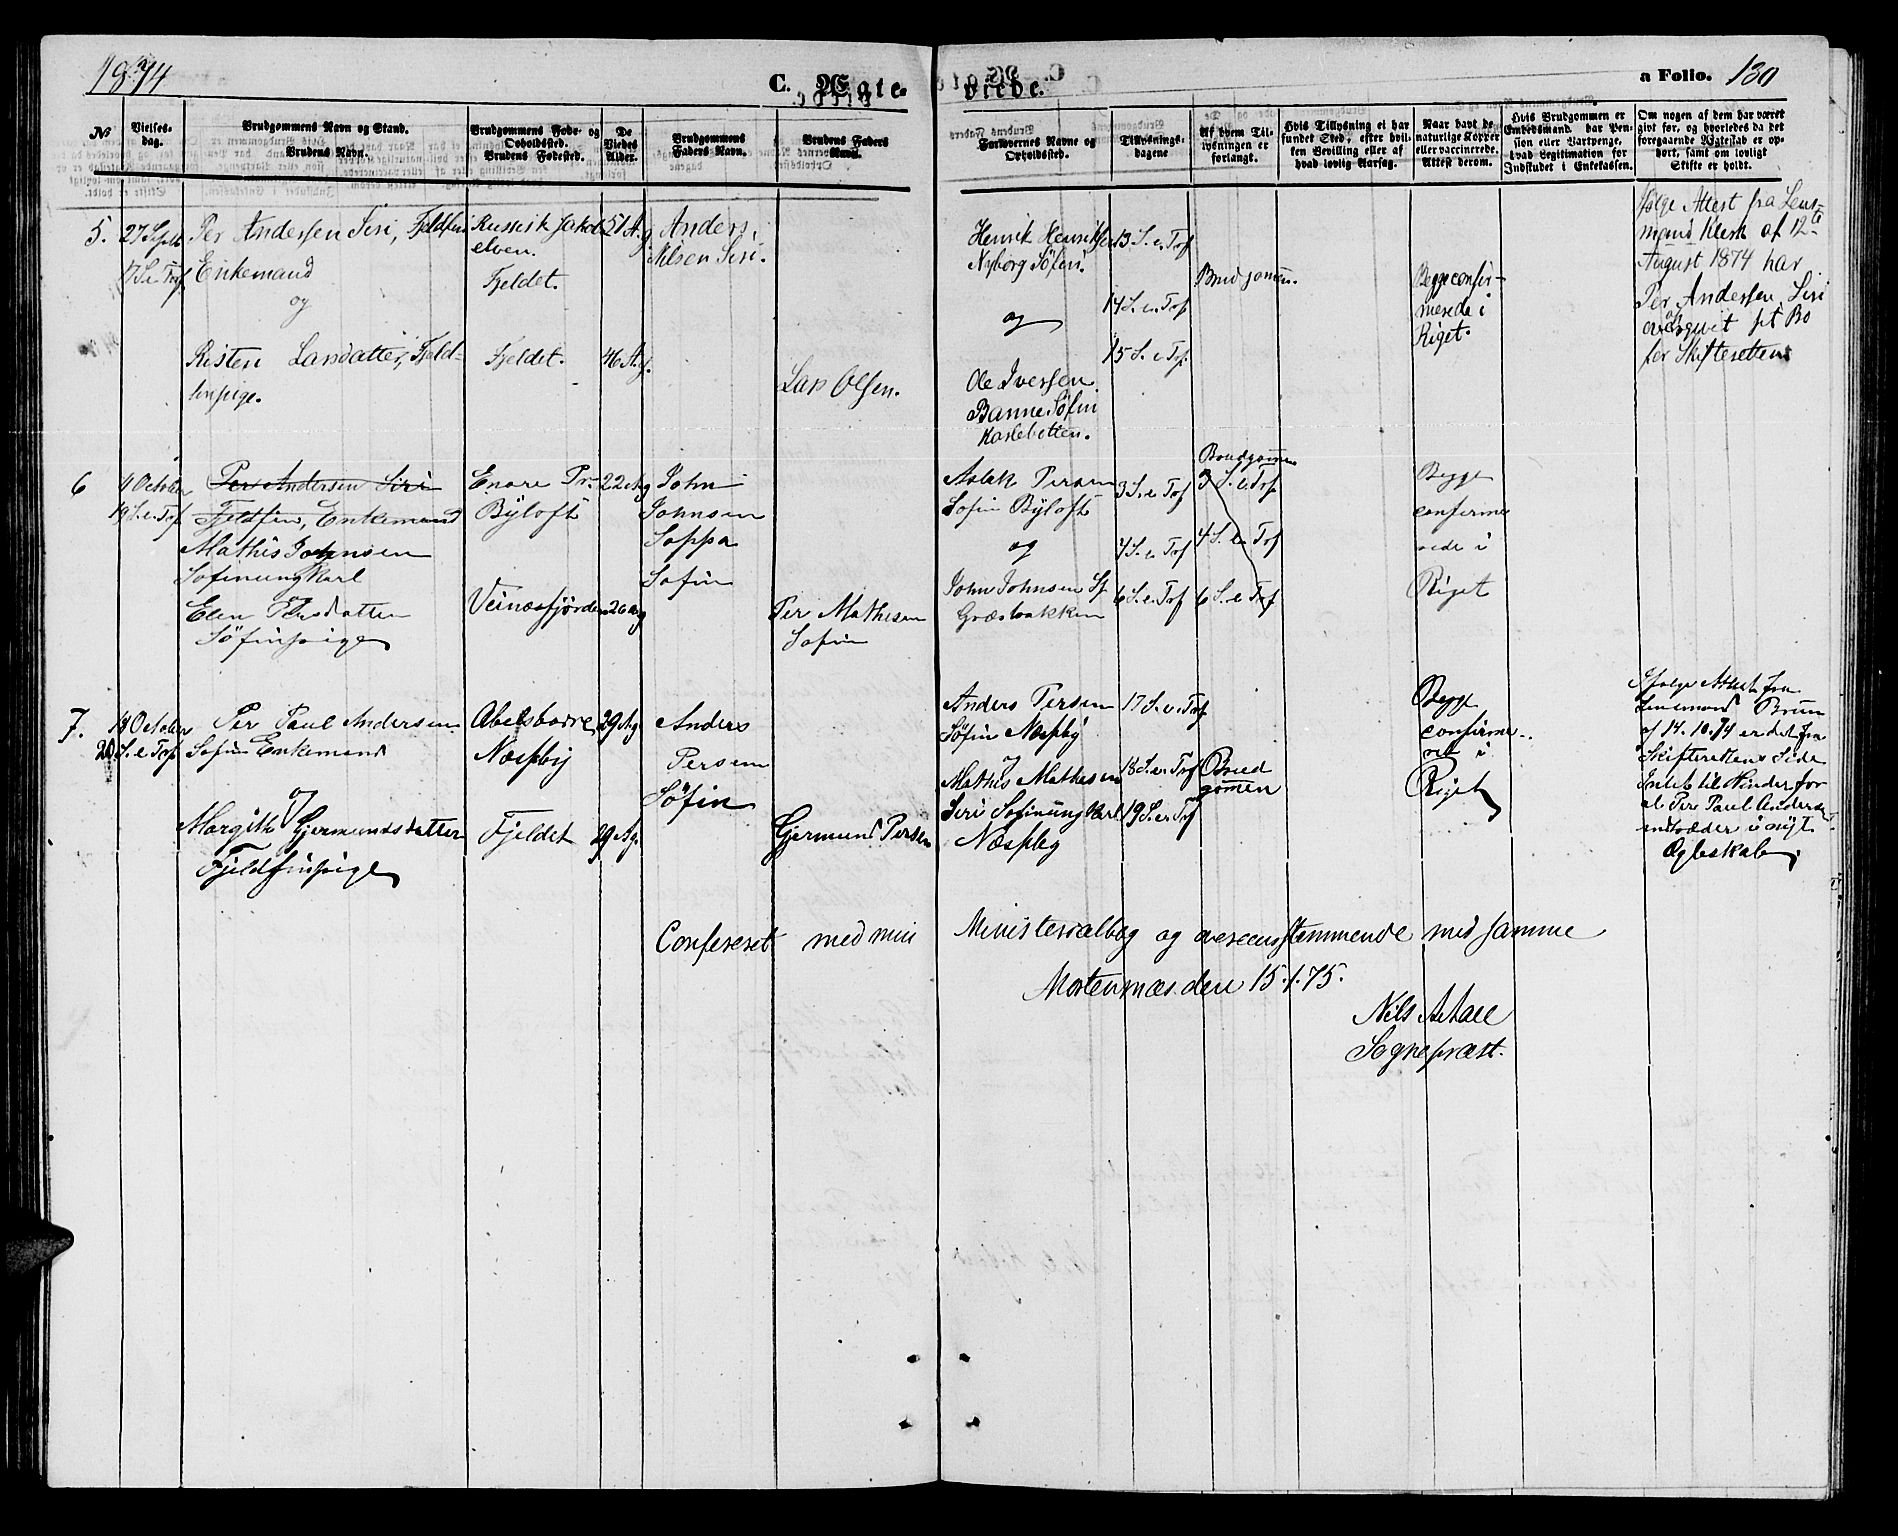 1874
C. Ægte-
viede.
a Folio. 130
No
Vielses-
dag.
Brudgommens Navn og Stand.
Brudens Navn.
Brudgommens Føde- og
Opholdssted.
Brudens Fødested.
De
Viedes
Alder.
Brudgommens
Faders Navn.
Brudens Faders
Navn.
Forlovernes Navne og
Opholdssted.
Tillysnings-
dagene
Af hvem Til-
lysningen er
forlangt.
Hvis Tillysning ei har
fundet Sted, efter hvil-
ken Bevilling eller af
hvad lovlig Aarsag.
Naar havt de
naturlige Kopper
eller vaccinerede.
Attest derom.
Hvis Brudgommen er
Embedsmand, har Pen-
sion eller Vartpenge,
hvad Legitimation for
Indskudet i Enkekassen.
Om nogen af dem har været
givt før, og hvorledes da det
foregaaende Ægteskab er op-
hørt, samt om lovligt
Skifte er holdt.
5.
27 Septb
17 S. e. Tref.
Per Andersen Siri, Fjeldfin
Enkemand
og
Risten Larsdatter, Fjeld-
finpige.
Russisk Jakobs
elven.
Fjeldet.
Fjeldet.
51 Ag
46 Ag.
Anders
Nilsen Siri.
Lars Olsen.
Henrik Henriksen
Nyborg Søfin.
og
Ole Iversen
Banne Søfin
Karlebotten.
13 S. e. Tref
14 S. e. Tref
15 S. e. Tref.
Brudgommen.
Begge confir-
merede i
Riget.
følge Attest fra Lens-
mand Klerk af 12te
August 1874 har
Per Andersen Siri
opgivet sit Bo
for Skifteretten
6
11 October
19 S. e. Tref.
Per Andersen Siri
Fjeldfin, Enkemand
Mathis Johnsen
Søfinungkarl
Elen Persdatter
Søfinpige
Enare Pr.
Byloft
Veinesfjorden
22 Ag
26 Ag
John
Johnsen
Soppa
Søfin
Per Mathisen
Søfin
Aslak Persen
Søfin Byloft
og
John Johnsen Sf.
Græsbakken
3 S. e. Tref
4 S. e. Tref
6 S. e. Tref
Brudgommen
3 S. e. Tref
4 S. e. Tref
6 S. e. Tref
Begge
confirme
rede i
Riget
7.
18 October
20 S. e. Tref
Per Paul Andersen
Søfin Enkemand
og
Margith Gjermundsdatter
Fjeldfinpige
Abelsborre
Næsseby
Fjeldet
29 Ag.
29 Ag.
Anders
Persen
Søfin
Gjermund Persen
Anders Persen
Søfin Næsseby
og
Mathis Mathisen
Siri Søfinungkarl
Næsseby
17 S. e. Tref
18 S. e. Tref
19 S. e. Tref
Brud
gommen
Begge
confirme-
ret i
Riget
Ifølge Attest fra
Lensmand Brun
af 14.10.74 er det fra
Skifterettens Side
Intet til Hinder for
at Per Paul Andersen
indtræder i nyt
Ægteskab.
Confereret med min Ministerialbog og overeensstemmende med samme
Mortensnæs den 15.1.75.
Nils A. Aall
Sognepræst.